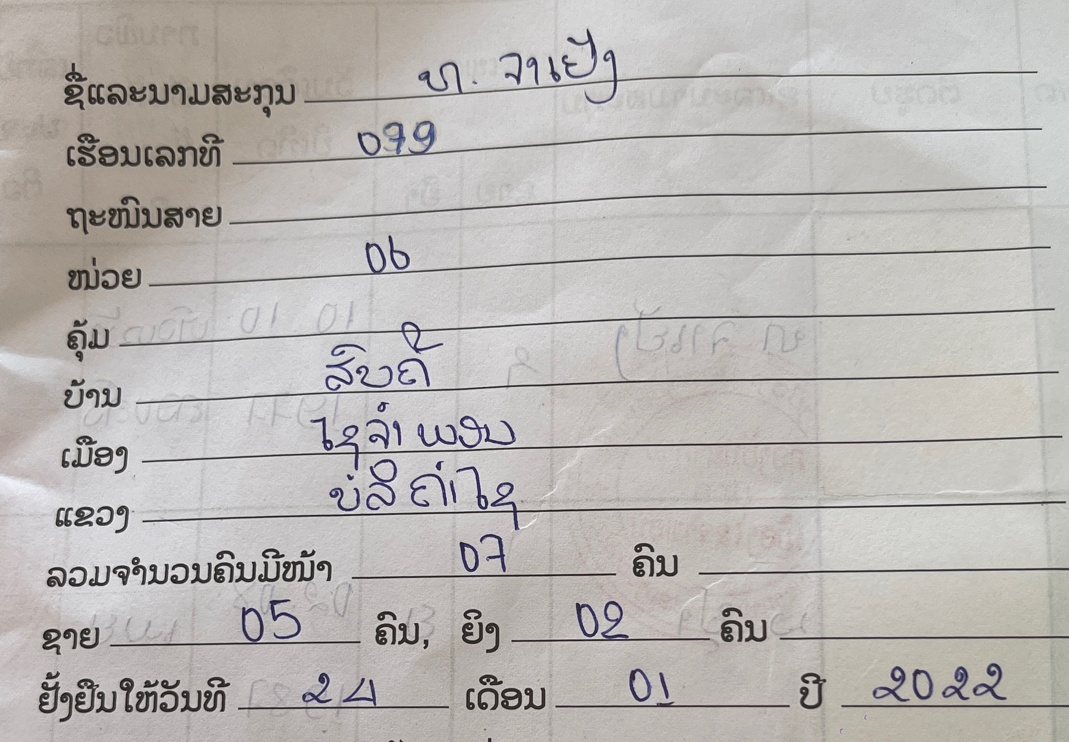 ຊື່ແລະນາມສະກຸນ ທ. ຈາເຢັ່ງ
ເຮືອນເລກທີ 079
ຖະໜົນສາຍ
ໜ່ວຍ 06
ຄຸ້ມ
ບ້ານ ສົບຄີ້
ເມືອງ ໄຊຈຳພອນ
ແຂວງ ບໍລິຄຳໄຊ
ລວມຈຳນວນຄົນມີໜ້າ 07 ຄົນ
ຊາຍ 05 ຄົນ, ຍິງ 02 ຄົນ
ຢັ້ງຢືນໃຫ້ວັນທີ 24 ເດືອນ 01 ປີ 2022